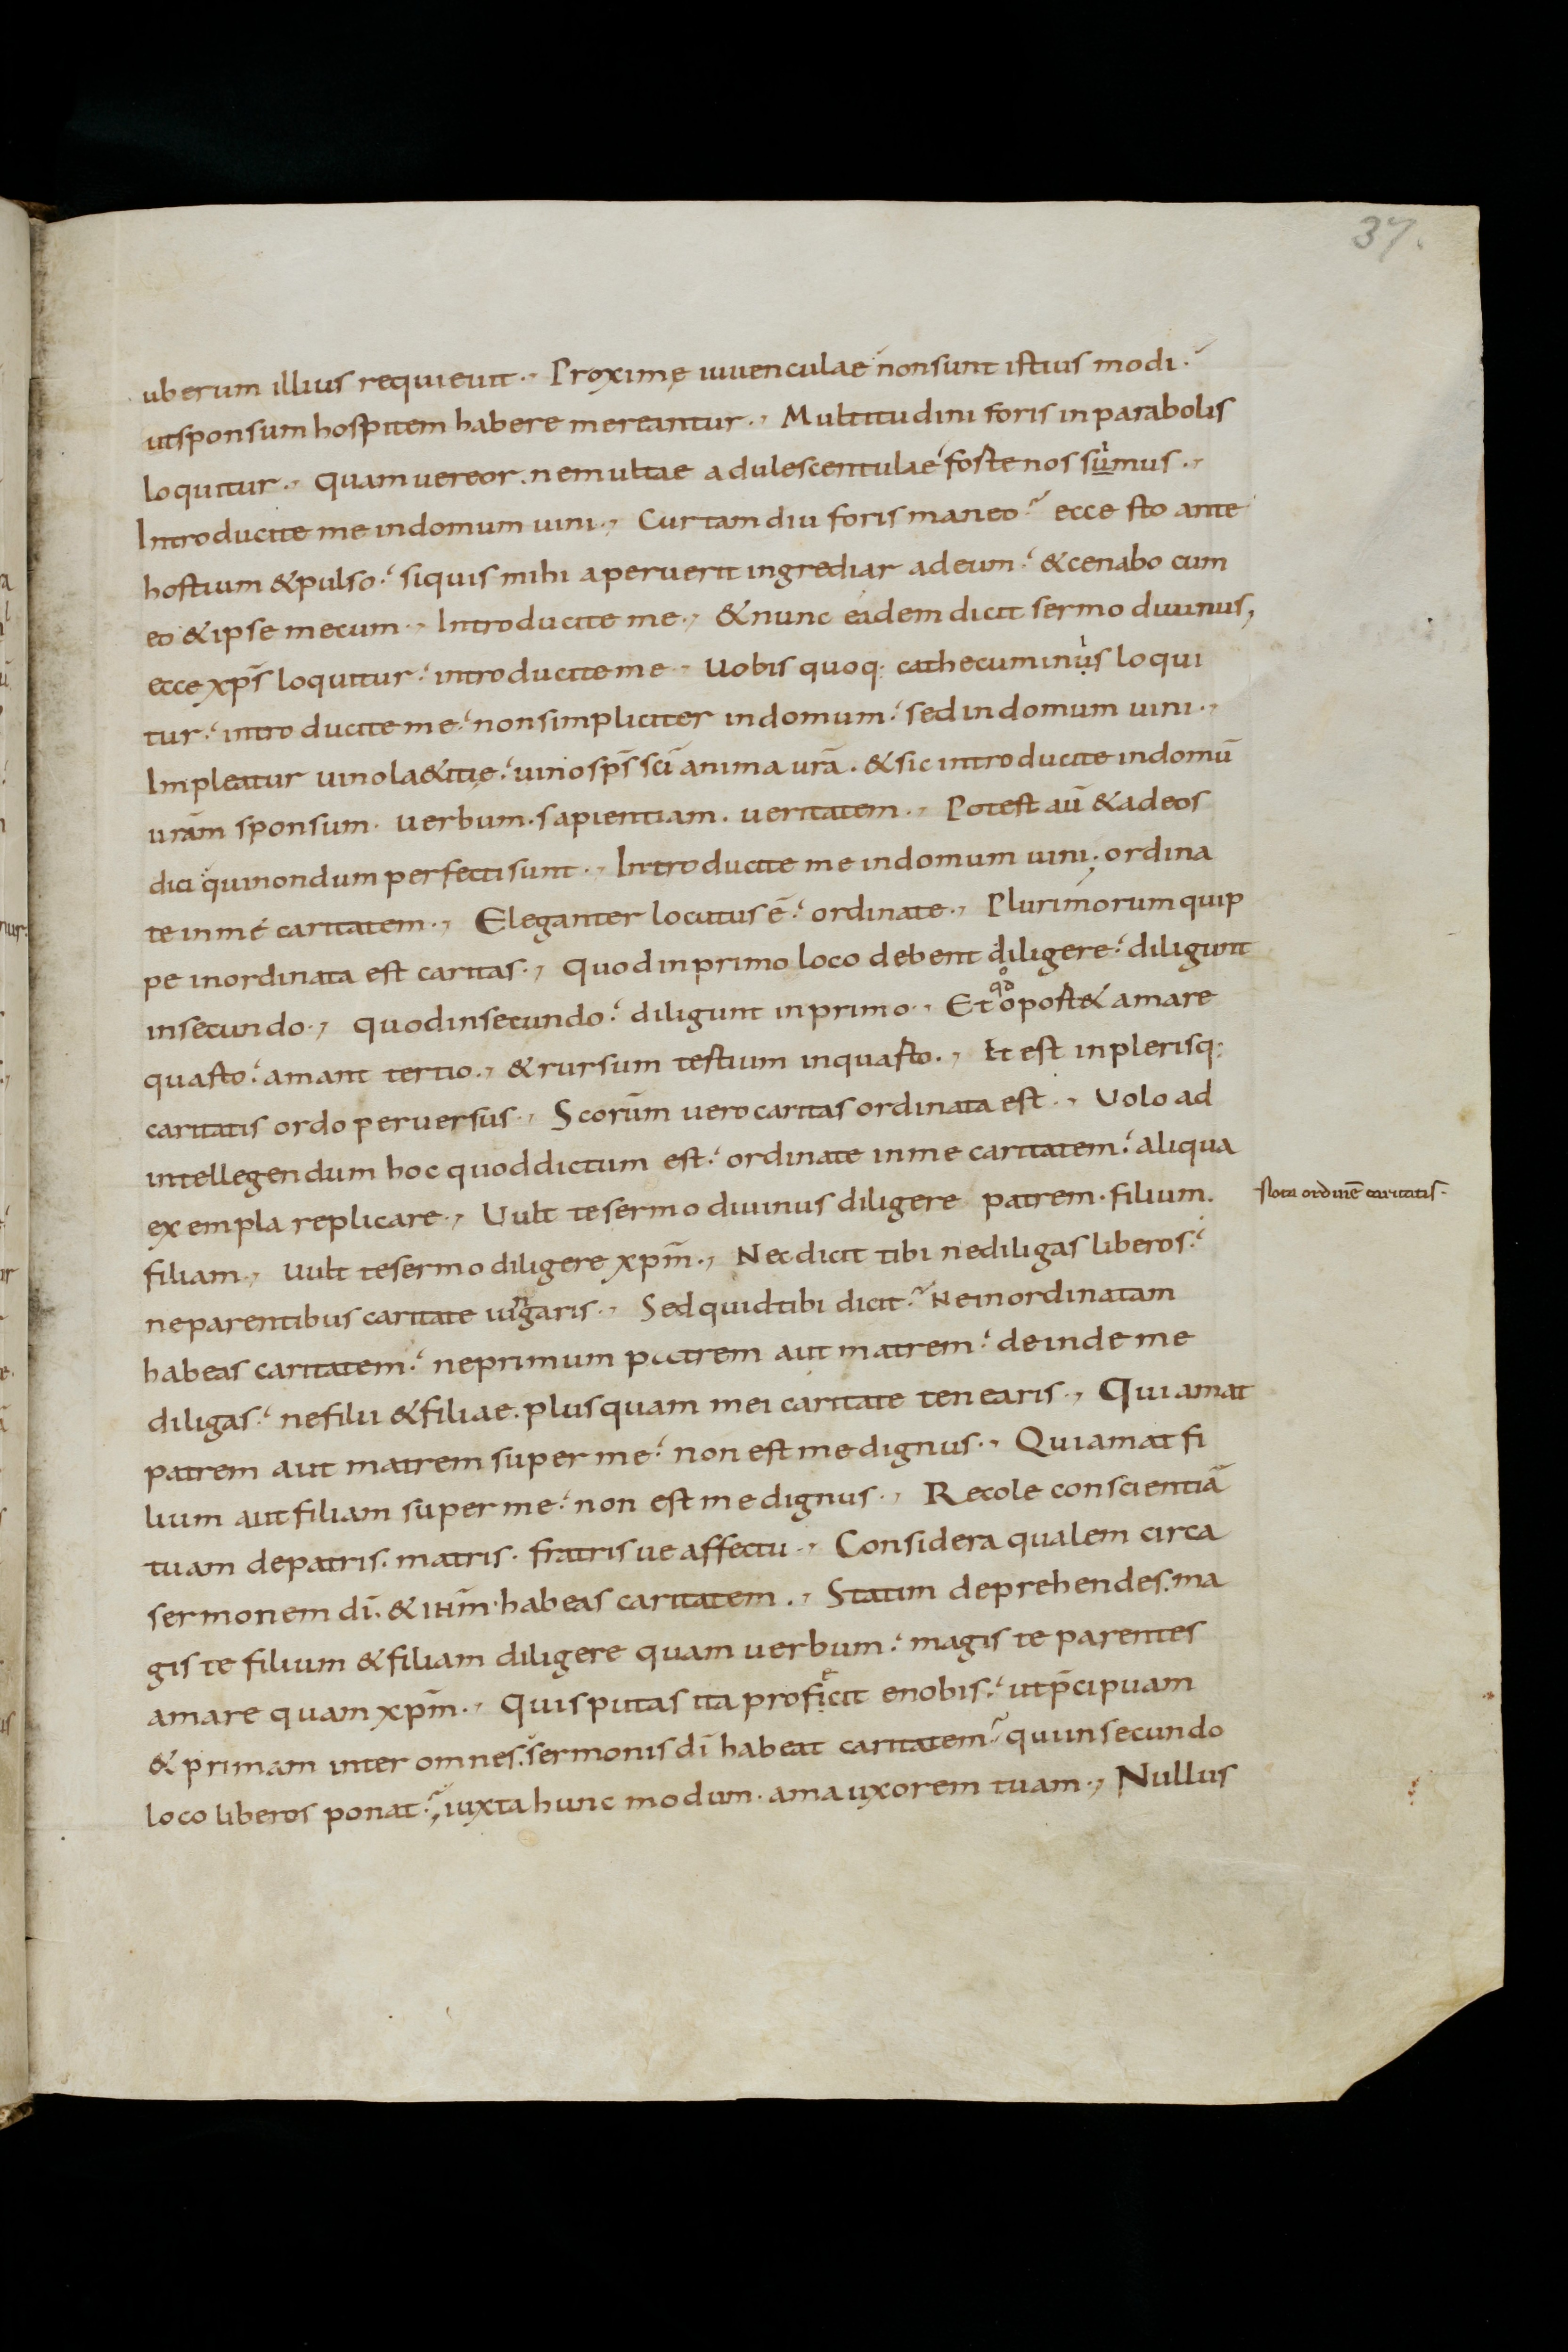 37.
uberum illius requieuit. Proximę iuuenculae non sunt istius modi.
ut sponsum hospitem habere mereantur. Multitudini foris in parabolis
loquitur. Quam uereor. ne multae adulescentulae forte nos simus.
Introducite me in domum uini. Cur tam diu foris maneo? ecce sto ante
hostium & pulso. siquis mihi aperuerit ingrediar ad eum. & cenabo cum
eo & ipse mecum. Introducite me. & nunc eadem dicit sermo diuinus,
ecce xp̄s loquitur. introducite me. Uobis quoq: cathecuminis loqui
tur. introducite me. non simpliciter in domum. sed in domum uini.
Impleatur uino laetitię. uino sp̄s sc̄i anima ur̄a. & sic introducite in domū
ur̄am sponsum. uerbum. sapientiam. ueritatem. Potest aū & ad eos
dici qui nondum perfecti sunt. Introducite me in domum uini; ordina
te in me caritatem. Eleganter locutus ē. ordinate. Plurimorum quip
pe inordinata est caritas. quod in primo loco debent diligere. diligunt
in secundo. quod in secundo. diligunt in primo. Et qđ oport& amare
quarto. amant tertio. & rursum tertium in quarto. Et est in plerisq:
caritatis ordo peruersus. Scōrum uero caritas ordinata est. Uolo ad
intellegendum hoc quod dictum est. ordinate in me caritatem. aliqua
exempla replicare. Uult te sermo diuinus diligere patrem. filium.
Nota ordinē caritatis.
filiam. uult te sermo diligere xp̄m. Nec dicit tibi ne diligas liberos.
ne parentibus caritate iungaris. Sed quid tibi dicit? Ne inordinatam
habeas caritatem. ne primum patrem aut matrem. deinde me
diligas. ne filii & filiae. plus quam mei caritate tenearis. Qui amat
patrem aut matrem super me. non est me dignus. Qui amat fi
lium aut filiam super me. non est me dignus. Recole conscientiā
tuam de patris. matris. fratris ue affectu. Considera qualem circa
sermonem dī. & ihm̄. habeas caritatem. Statim deprehendes. ma
gis te filium & filiam diligere quam uerbum. magis te parentes
amare quam xp̄m. Quis putas ita profecit e nobis. ut p̄cipuam
& primam inter omnes. sermonis dī habeat caritatem? qui in secundo
loco liberos ponat? iuxta hunc modum. ama uxorem tuam. Nullus